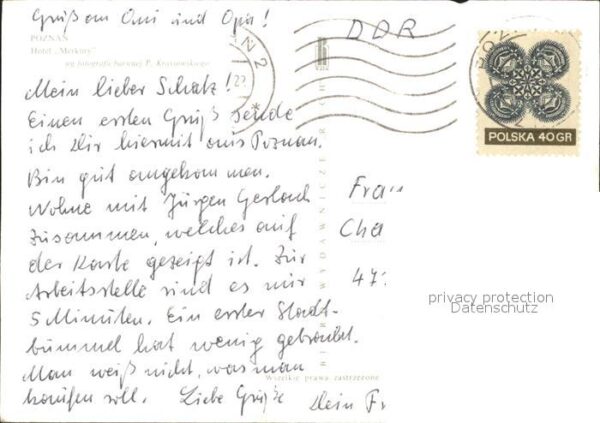 Gruß an Omi und Opa!
POZNAŃ
Hotel „Merkury"
wg fotografii barwnej P. Krassowskiego
DDR
POLSKA 40 GR
Mein lieber Schatz!
Einen ersten Gruß sende
ich Dir hiermit aus Poznan.
Bin gut angekommen.
Wohne mit Jürgen Gerlach
zusammen, welches auf
der Karte gezeigt ist. Zur
Arbeitsstelle sind es nur
5 Minuten. Ein erster Stadt-
bummel hat wenig gebracht.
Man weiß nicht, was man
kaufen soll. Liebe Grüße
Dein Fr
Wszelkie prawa zastrzeżone
BIURO WYDAWNICZE RUCH
Frau
Cha
47
privacy protection
Datenschutz